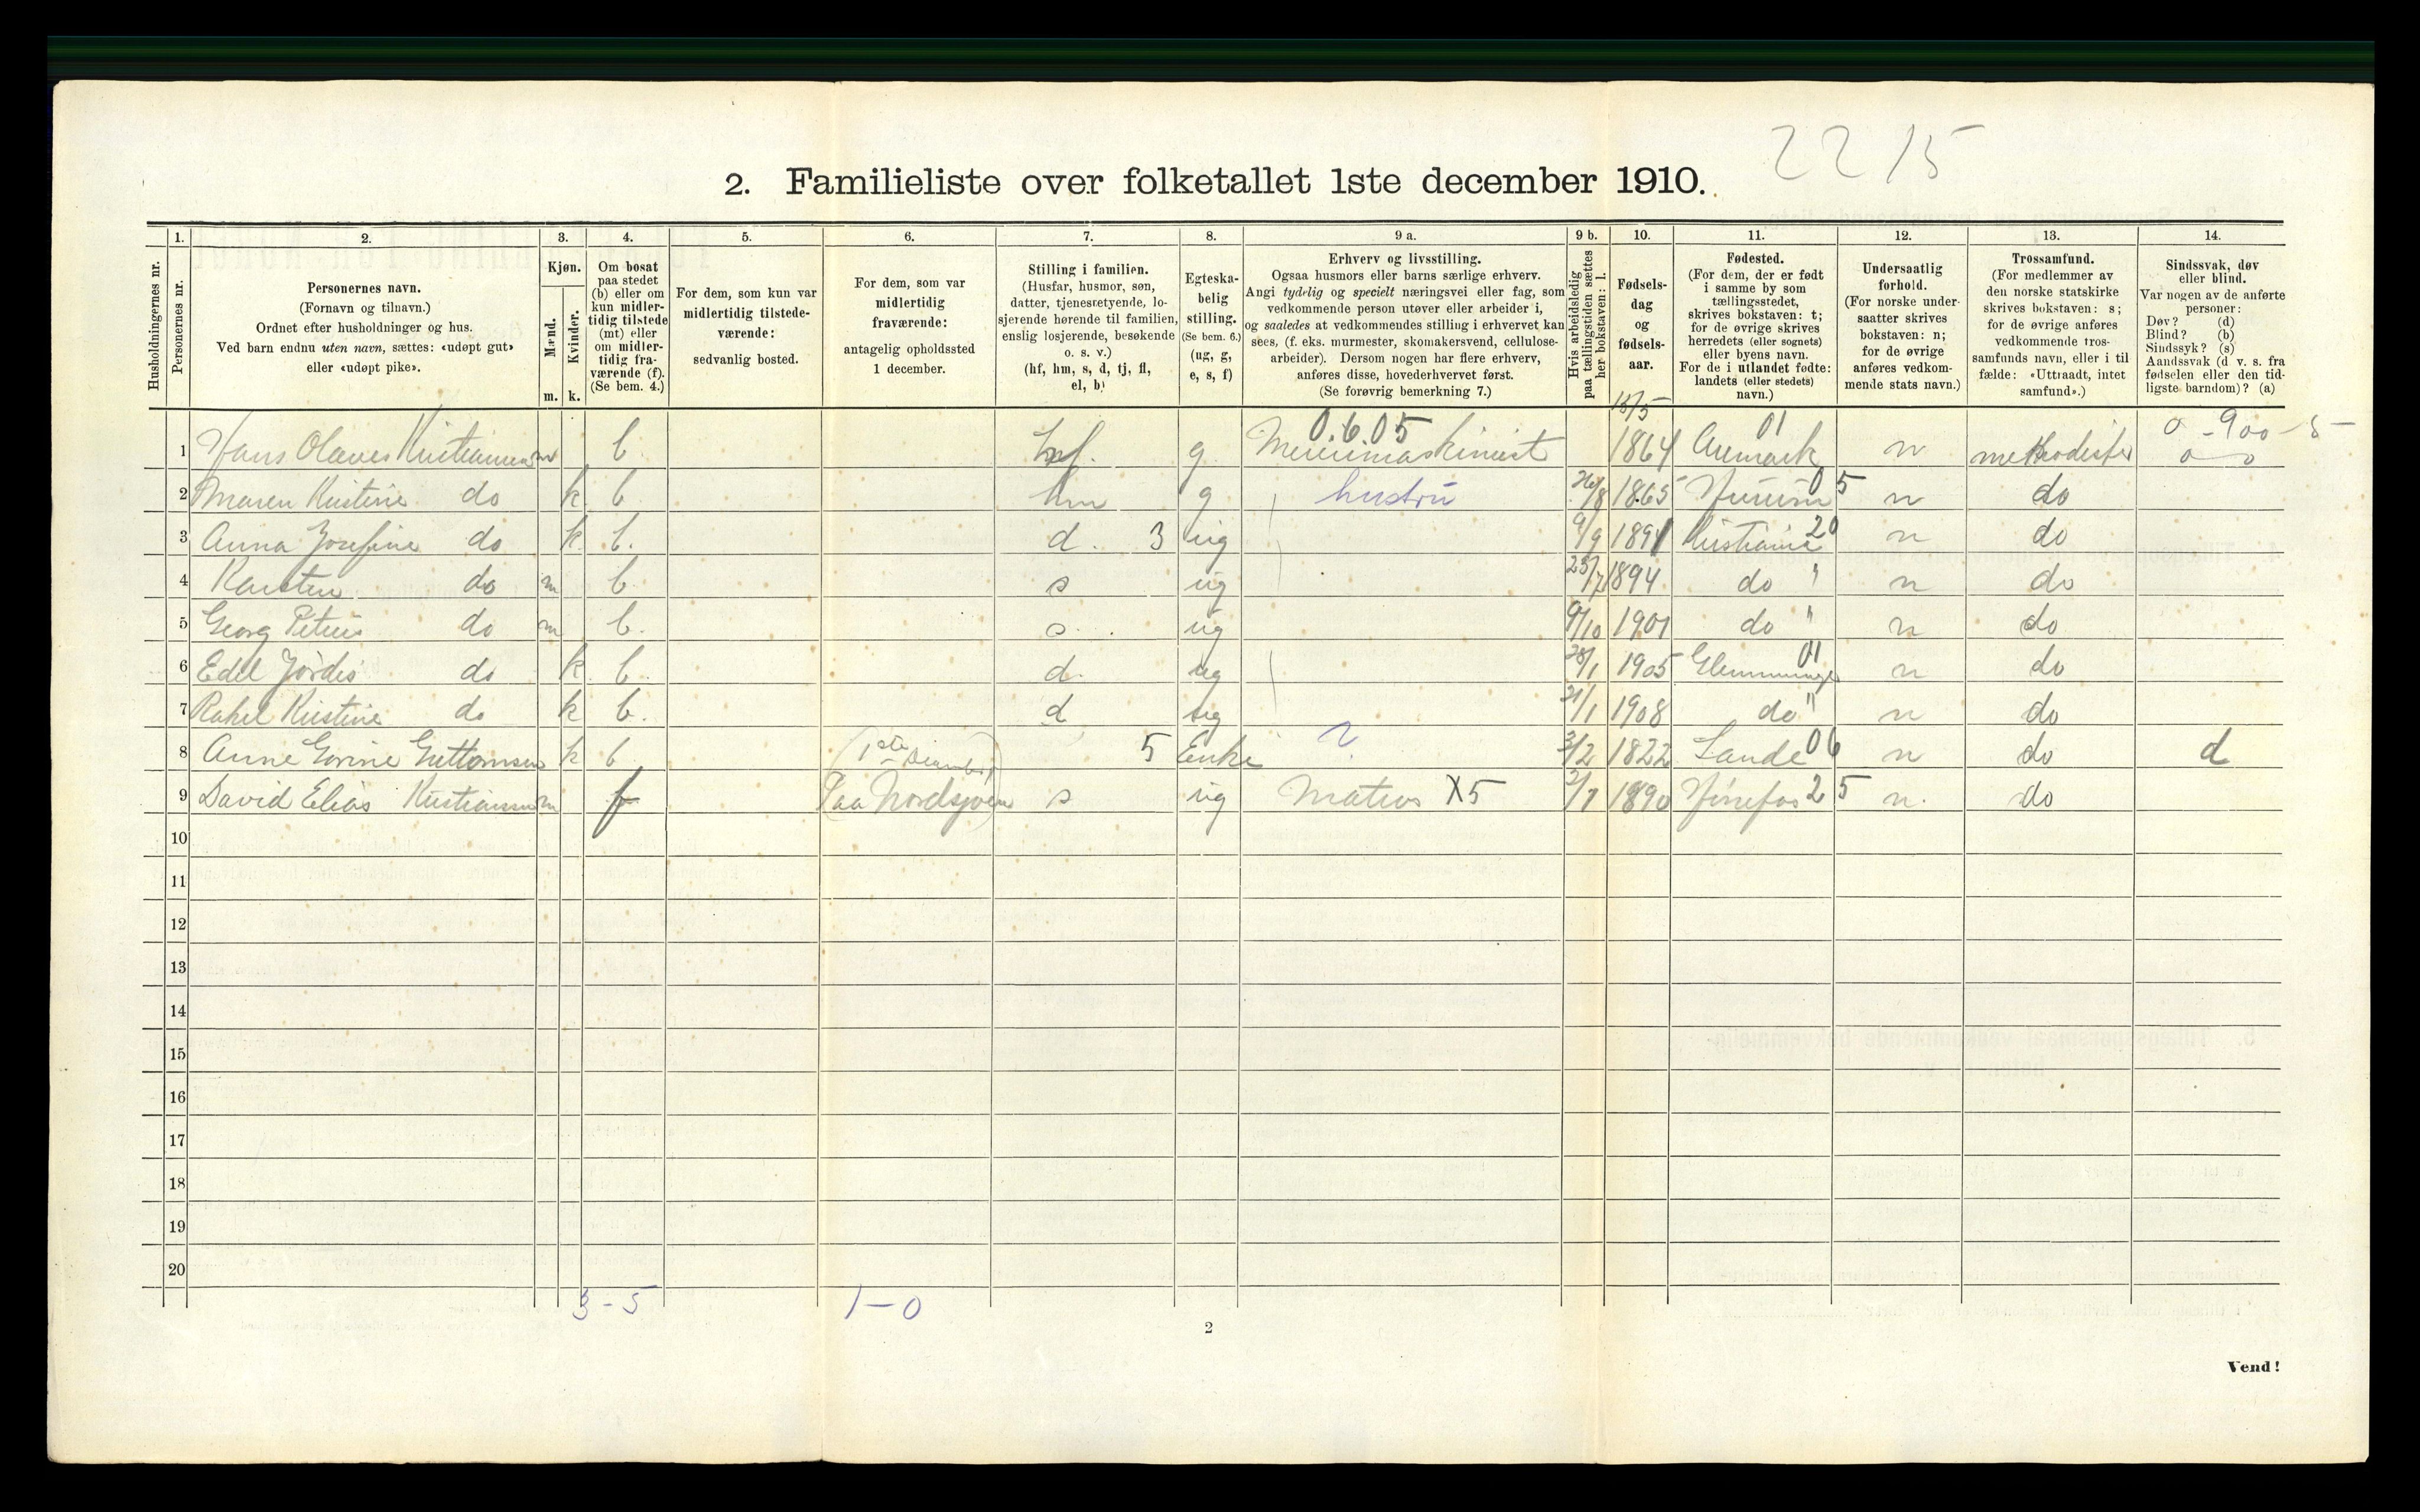 22 15
2. Familieliste over folketallet 1ste december 1910.
Husholdningernes nr.
1. Personernes nr.
2. Personernes navn.
(Fornavn og tilnavn.)
Ordnet efter husholdninger og hus.
Ved barn endnu uten navn, sættes: «udøpt gut»
eller «udøpt pike».
3. Kjøn.
Mænd. m.
Kvinder. k.
4. Om bosat
paa stedet
(b) eller om
kun midler-
tidig tilstede
(mt) eller
om midler-
tidig fra-
værende (f).
(Se bem. 4.)
5. For dem, som kun var
midlertidig tilstede-
værende:
sedvanlig bosted.
6. For dem, som var
midlertidig
fraværende:
antagelig opholdssted
1 december.
7. Stilling i familien.
(Husfar, husmor, søn,
datter, tjenestetyende, lo-
sjerende hørende til familien,
enslig losjerende, besøkende
o. s. v.)
(hf, hm, s, d, tj, fl,
el, b)
8. Egteska-
belig
stilling.
(Se bem. 6.)
(ug, g,
e, s, f)
9 a. Erhverv og livsstilling.
Ogsaa husmors eller barns særlige erhverv.
Angi tydelig og specielt næringsvei eller fag, som
vedkommende person utøver eller arbeider i,
og saaledes at vedkommendes stilling i erhvervet kan
sees, (f. eks. murmester, skomakersvend, cellulose-
arbeider). Dersom nogen har flere erhverv,
anføres disse, hovederhvervet først.
(Se forøvrig bemerkning 7.)
9 b. Hvis arbeidsledig
paa tællingstiden sættes
her bokstaven: l.
10. Fødsels-
dag
og
fødsels-
aar.
11. Fødested.
(For dem, der er født
i samme by som
tællingsstedet,
skrives bokstaven: t;
for de øvrige skrives
herredets (eller sognets)
eller byens navn.
For de i utlandet fødte:
landets (eller stedets)
navn.)
12. Undersaatlig
forhold.
(For norske under-
saatter skrives
bokstaven: n;
for de øvrige
anføres vedkom-
mende stats navn.)
13. Trossamfund.
(For medlemmer av
den norske statskirke
skrives bokstaven: s;
for de øvrige anføres
vedkommende tros-
samfunds navn, eller i til
fælde: «Uttraadt, intet
samfund».)
14. Sindssvak, døv
eller blind.
Var nogen av de anførte
personer:
Døv? (d)
Blind? (b)
Sindssyk? (s)
Aandssvak (d. v. s. fra
fødselen eller den tid-
ligste barndom)? (a)
15/5 0.6.05 01 0 - 900 - 5 -
1 Hans Olaves Kristiansen m b hf. g Meierimaskinist 1864 Aremark n methodister
2 Maren Kristine do k b hm g hustru 26/8 1865 05 n do
3 Anna Josefine do k b. d. 3 ug 9/9 1891 Kristiania 20 n do
4 Karsten do m b s ug 23/7 1894 do " n do
5 Georg Petius do m b. s. ug 9/10 1901 do " n do
6 Edel Jordis do k b. d. ug 28/1 1905 Glemminge 01 n do
7 Rakel Kristine do k b. d ug 21/1 1908 do " n do
8 Anne Gorine Guttormsen k b (1ste December 5 Enke 3/2 1822 Sande 06 n do d
9 David Elias Kristiansen m f Paa Nordsjøen) s ug Matros X5 2/7 1890 Hønefos 25 n. do
10
11
12
13
14
15
16
17
18
19
20
3 - 5 1 - 0
2
Vend!